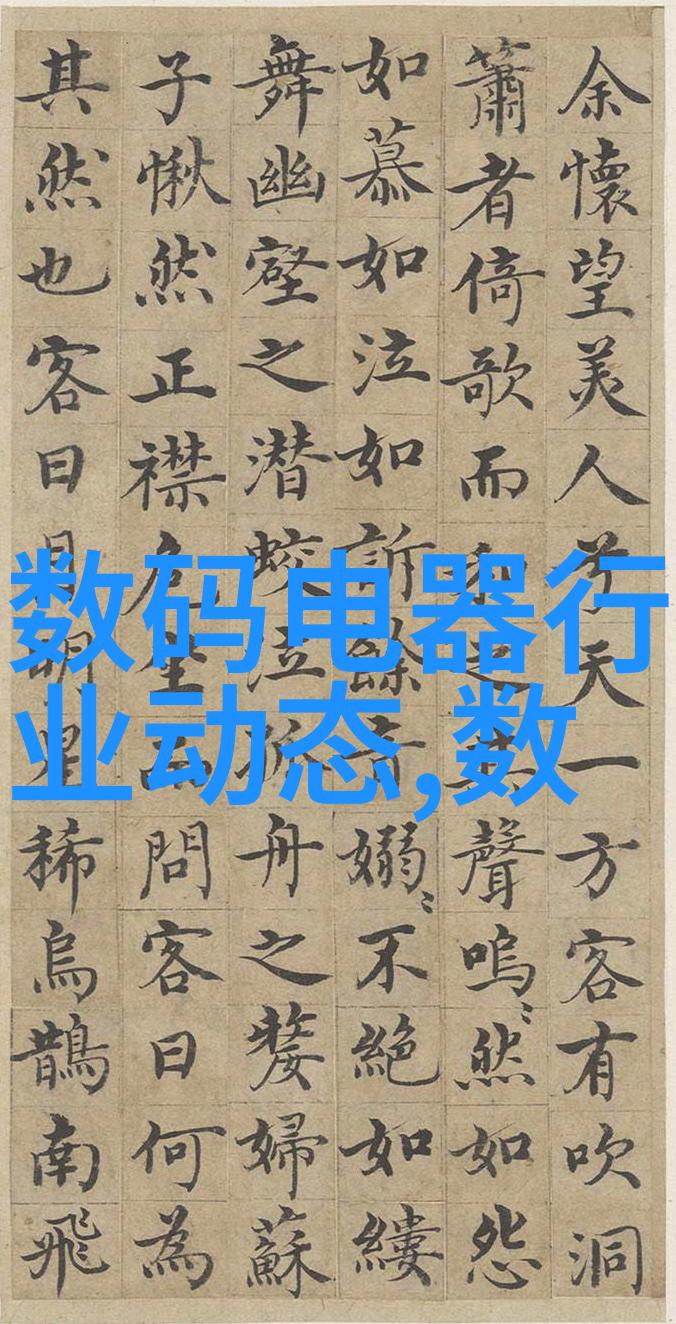 余懷望美人兮天一方客有吹洞
簫者倚歌而和之其聲嗚〻然如怨
如慕如泣如訴餘音嫋〻不絕如縷
舞幽壑之潛蛟泣孤舟之嫠婦蘇
子愀然正襟危坐而問客曰何為
其然也客曰月明星稀烏鵲南飛
数码电器行
业动态,数